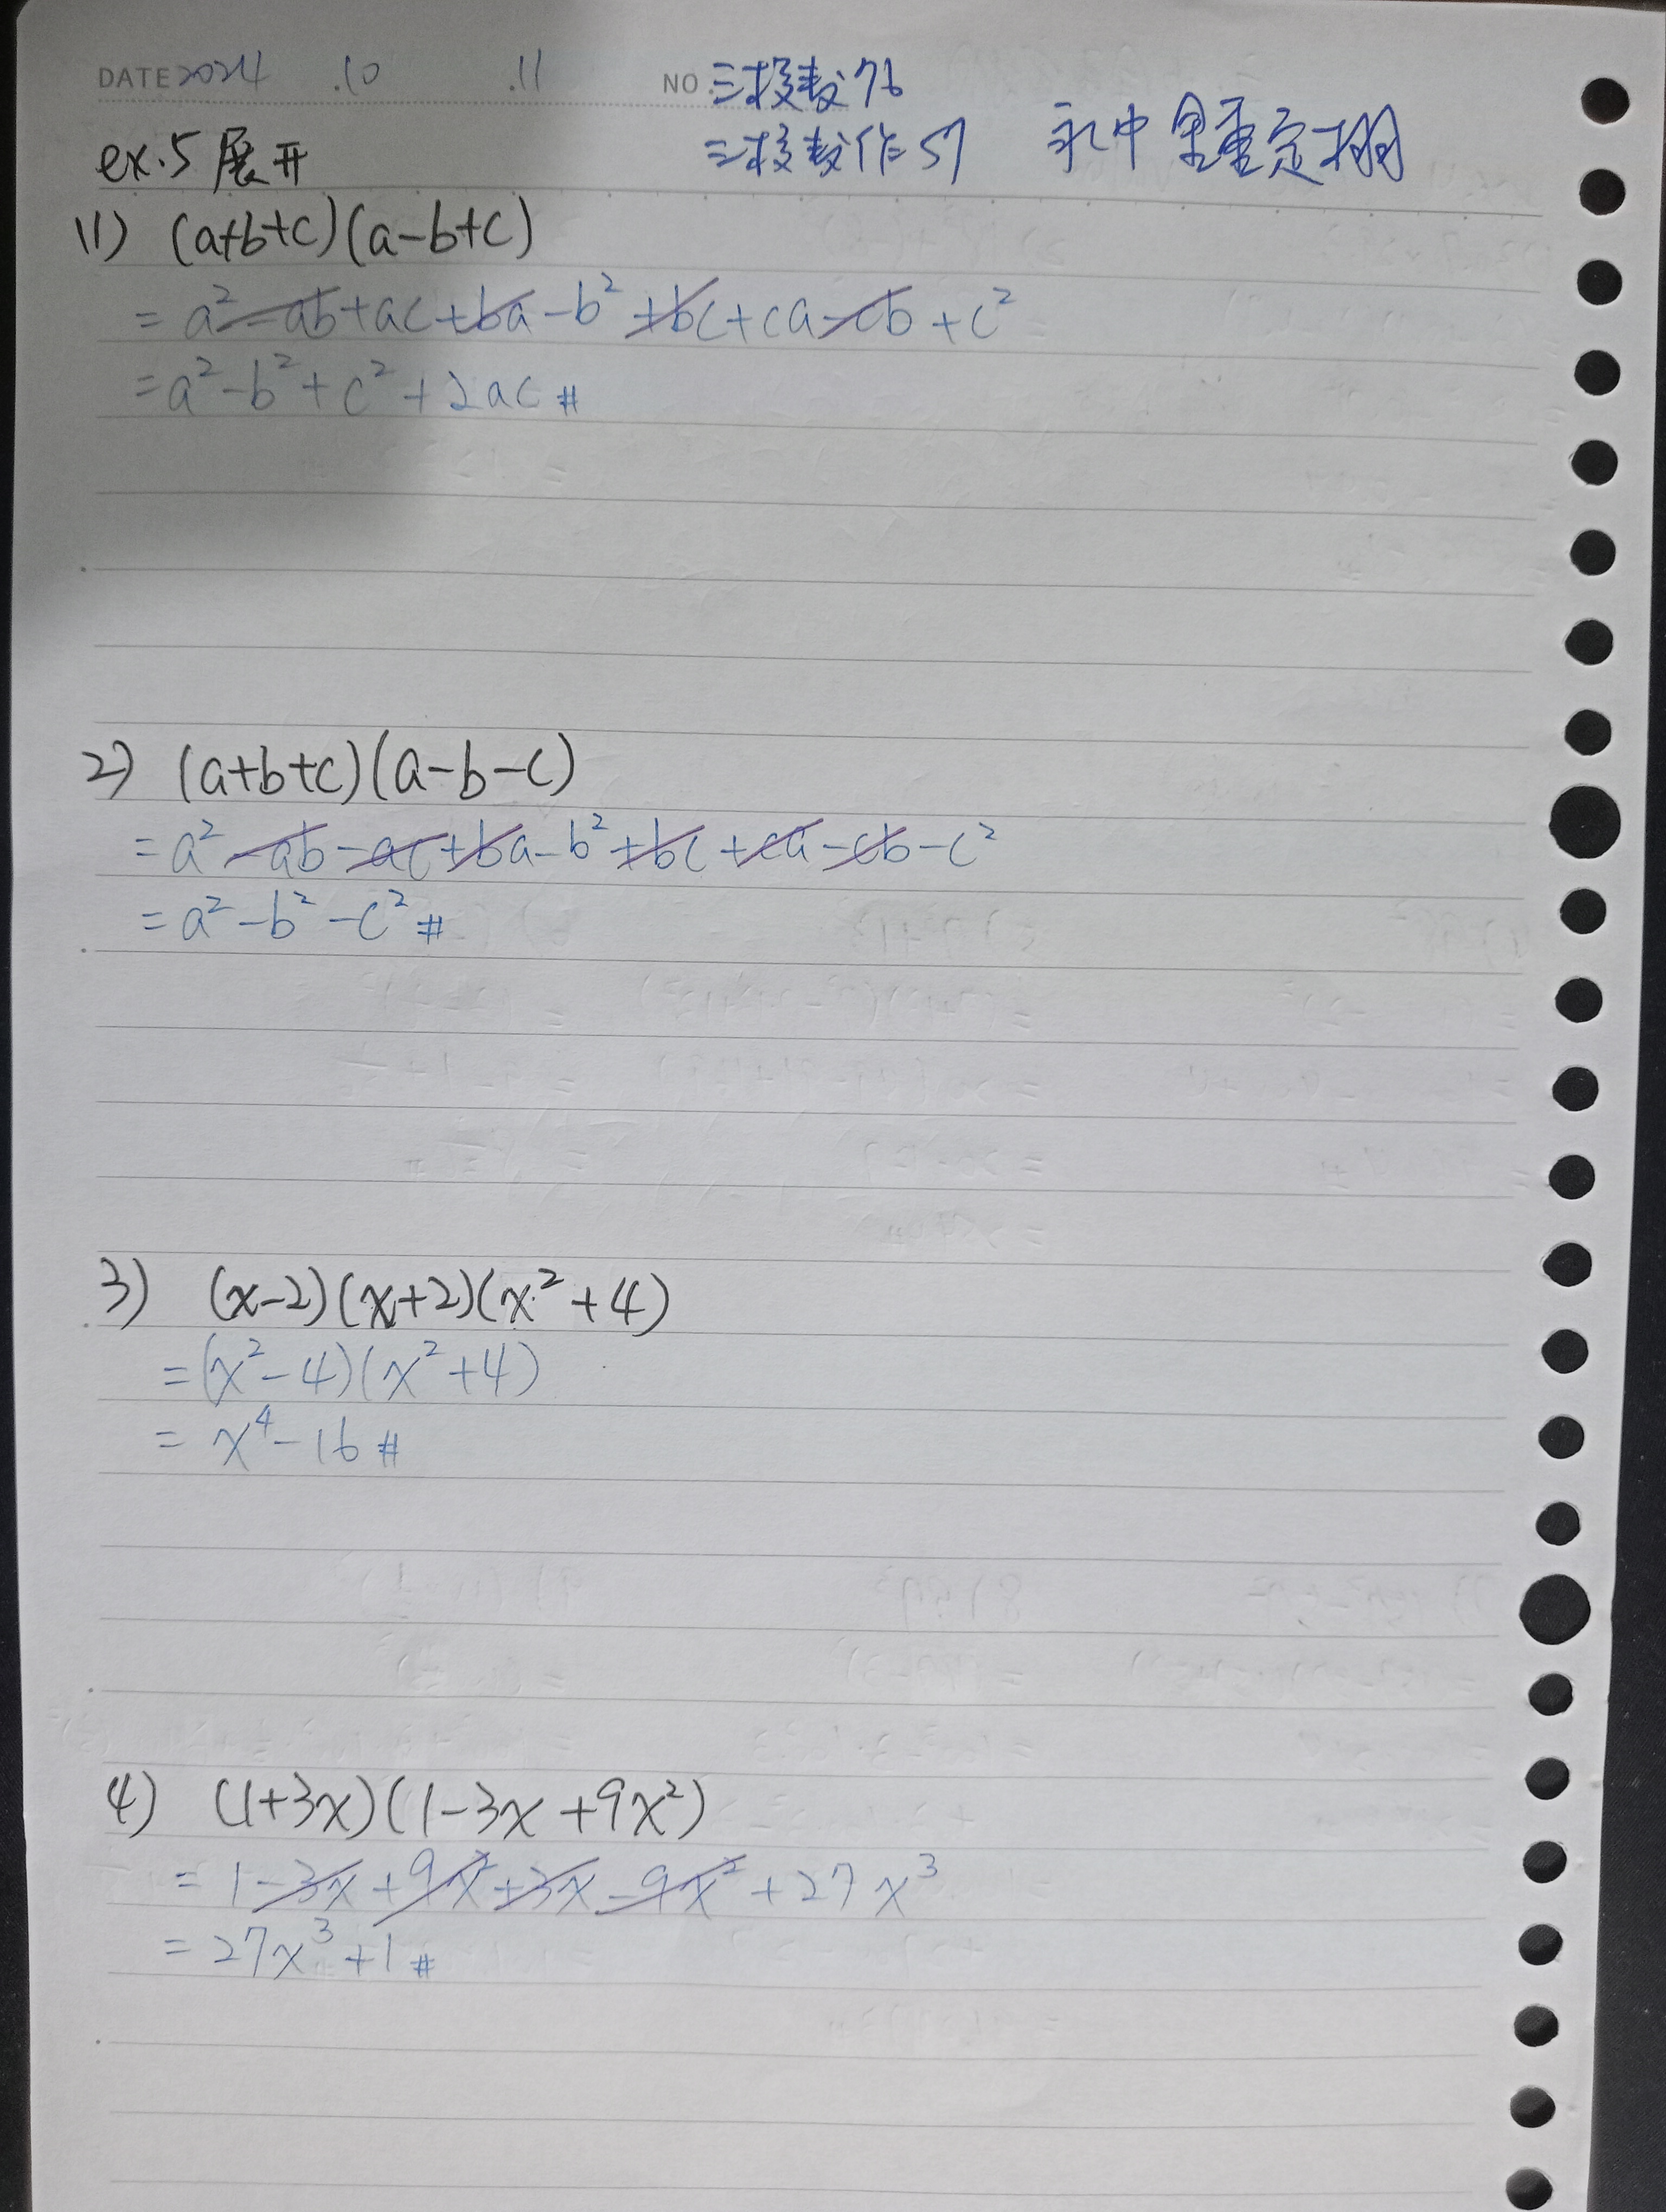 DATE 2024 .10 .11 NO. 三投数76
三投数作57 永中 鍾定栩
ex.5 展开
11) (a+b+c)(a-b+c)
= a² -ab+ac+ba-b²+bc+ca-cb+c²
= a²-b²+c²+2ac #
2) (a+b+c)(a-b-c)
= a² -ab-ac+ba-b²+bc+ca-cb-c²
= a²-b²-c² #
3) (x-2)(x+2)(x²+4)
= (x²-4)(x²+4)
= x⁴-16 #
4) (1+3x)(1-3x+9x²)
= 1-3x+9x²+3x-9x²+27x³
= 27x³+1 #